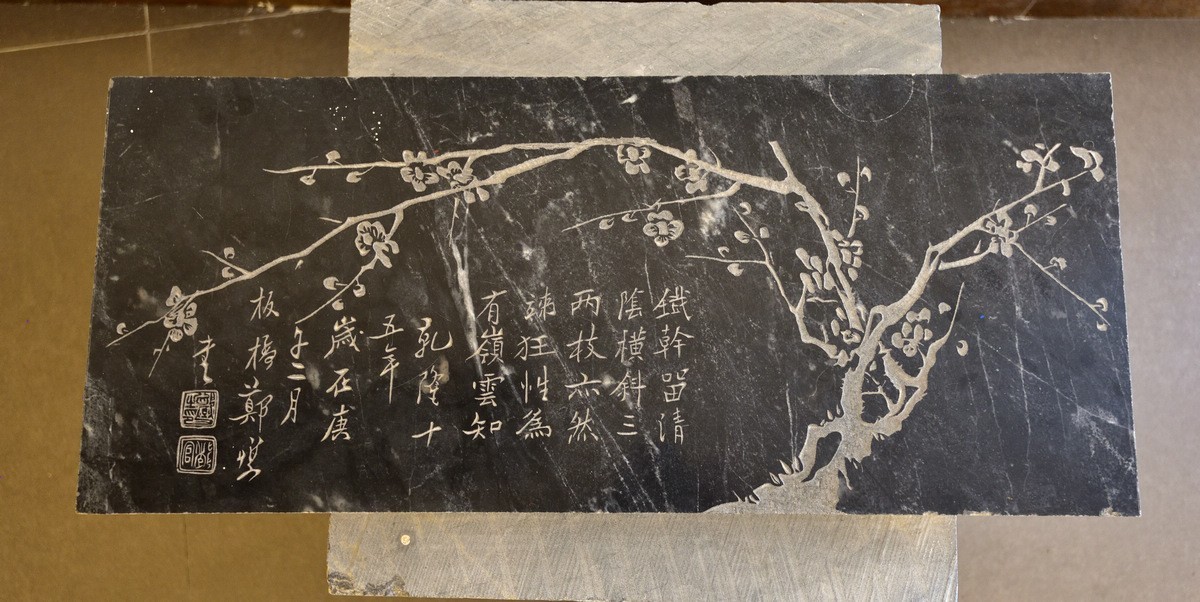 鐵幹留清
陰橫斜三
两枝亦然
疎狂性為
有嶺雲知
乾隆十
五年
歲在庚
午二月
板橋鄭燮
畫